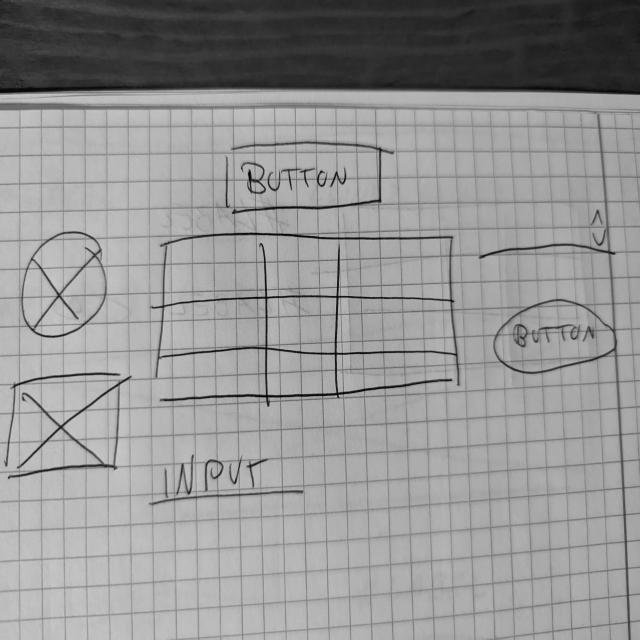 BUTTON
BUTTON
INPUT